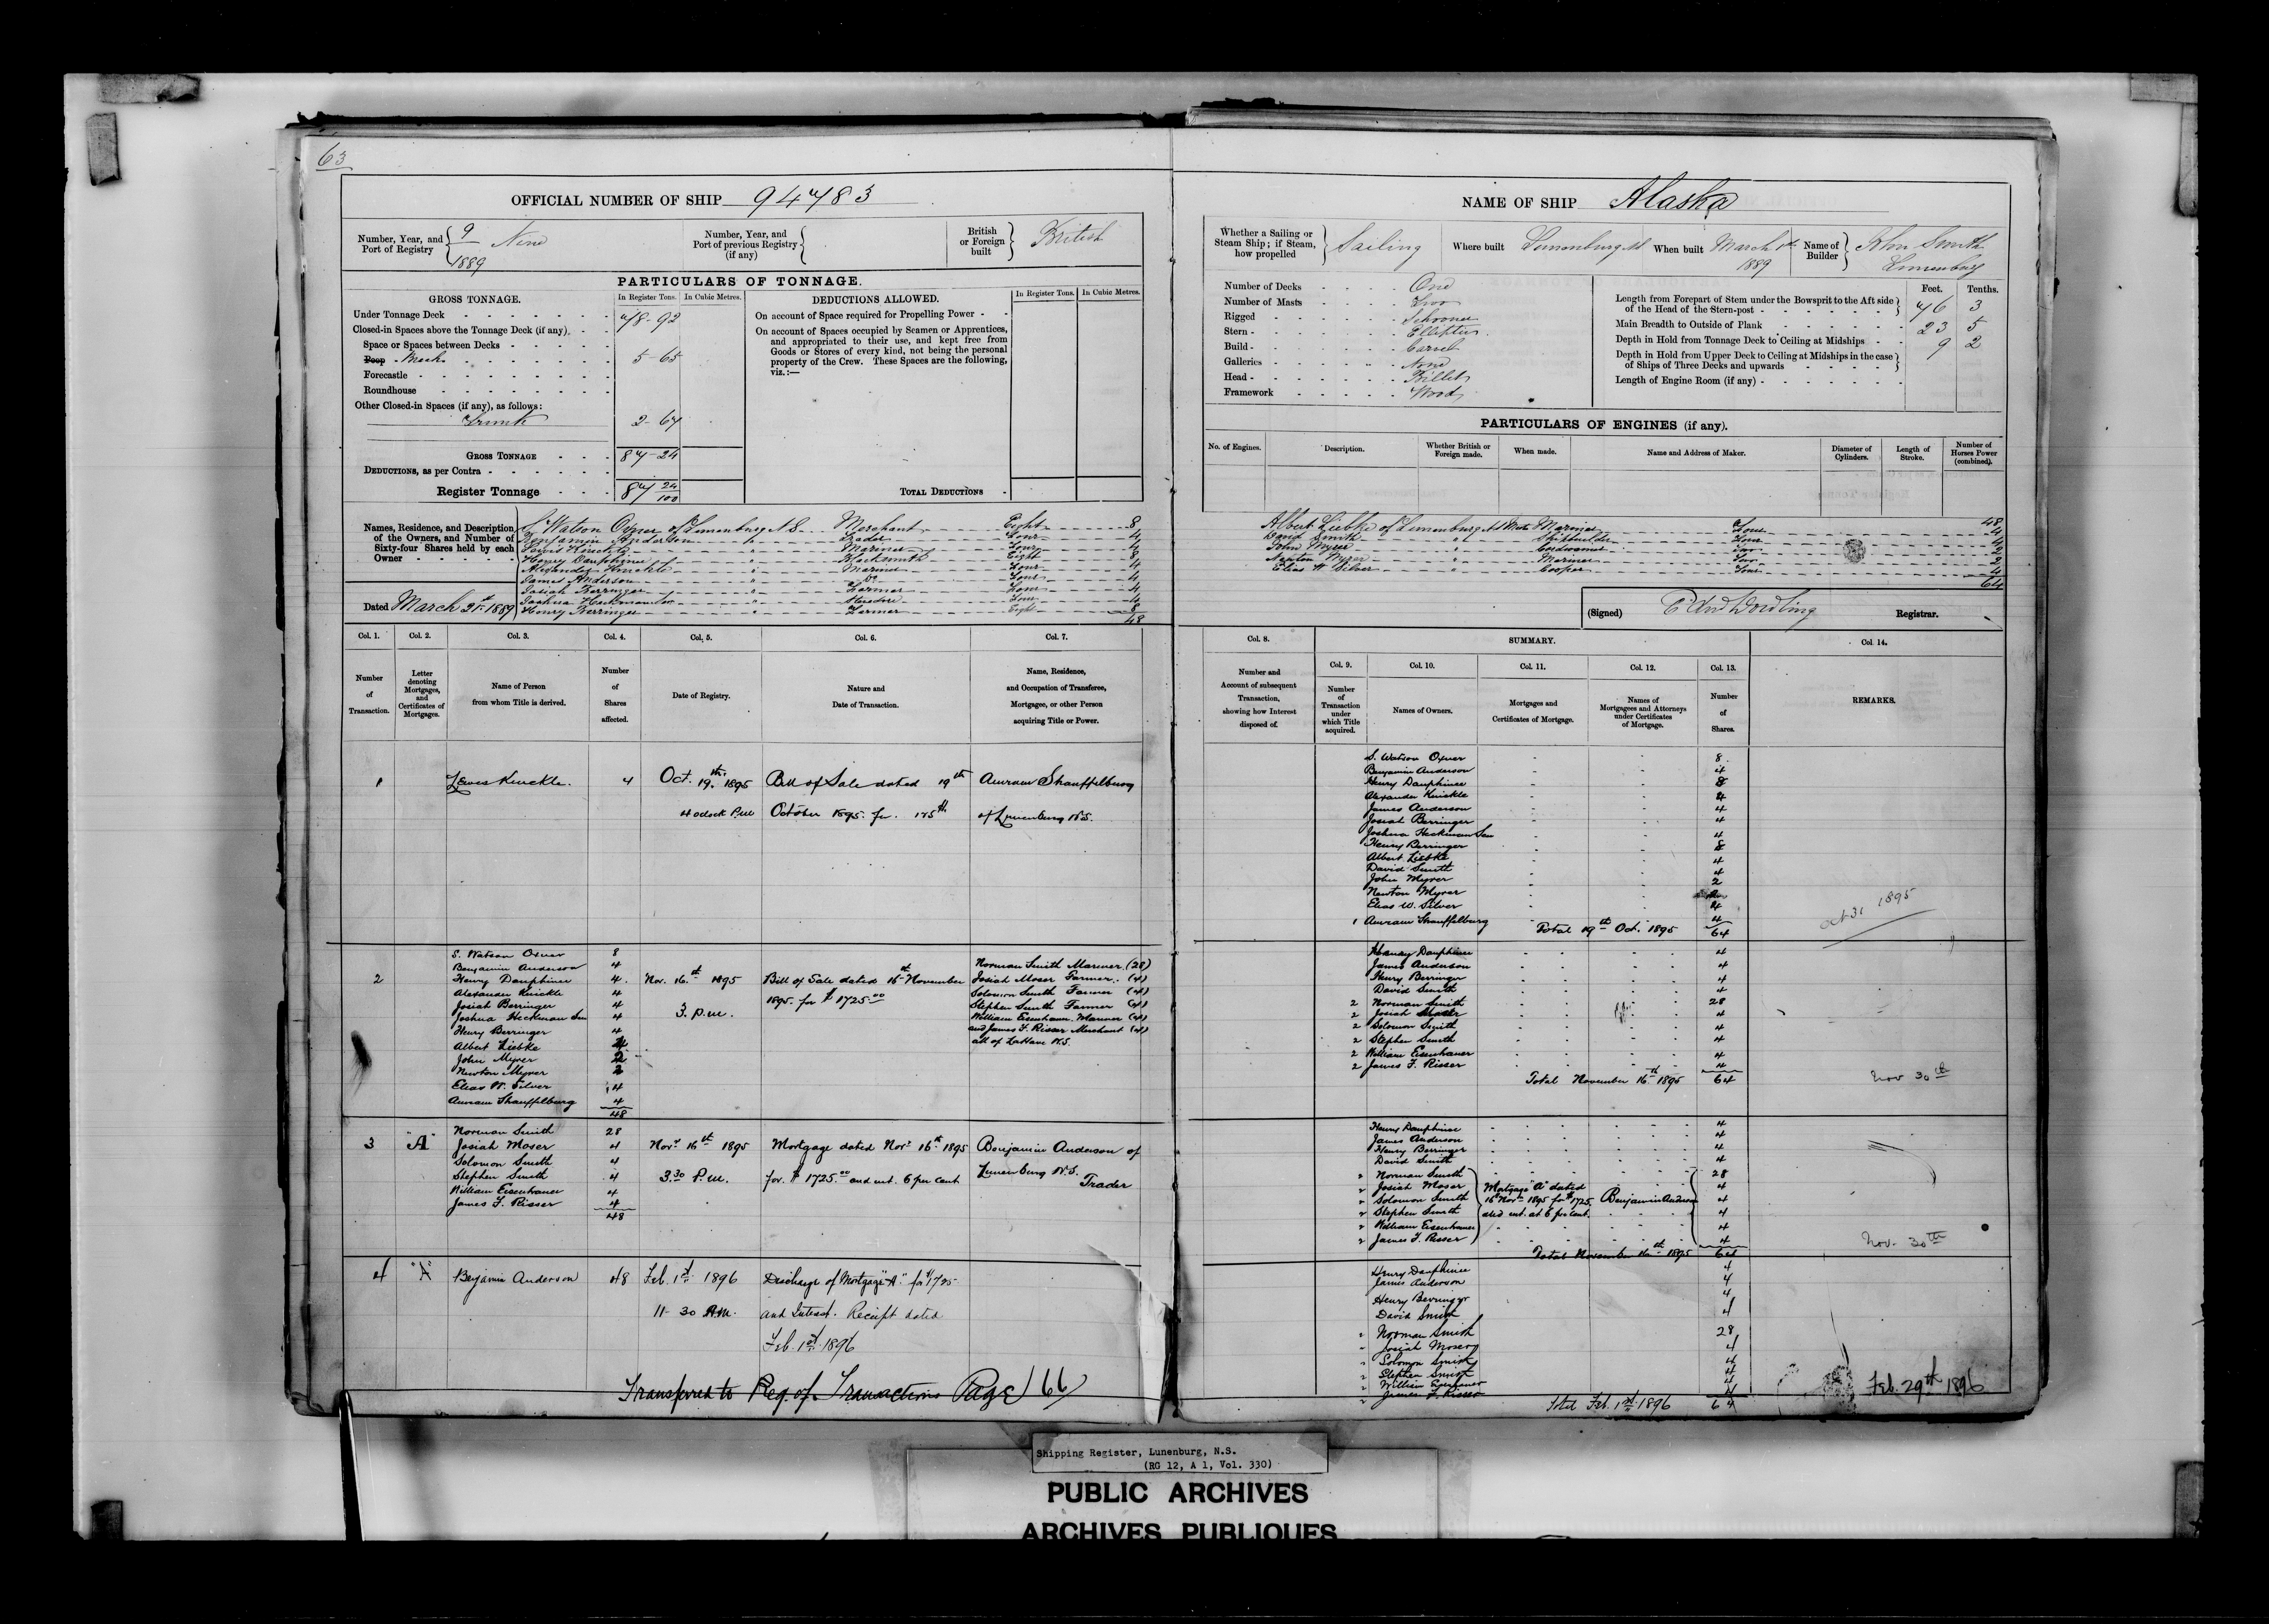 63
OFFICIAL NUMBER OF SHIP 94783
Number, Year, and Port of Registry 9 Nine 1889
Number, Year, and Port of previous Registry (if any)
British or Foreign built British
PARTICULARS OF TONNAGE.
GROSS TONNAGE. In Register Tons. In Cubic Metres.
Under Tonnage Deck 78-92
Closed-in Spaces above the Tonnage Deck (if any).
Space or Spaces between Decks
Poop 5-65
Forecastle
Roundhouse
Other Closed-in Spaces (if any), as follows:
Trunk 2-67
GROSS TONNAGE 87-24
DEDUCTIONS, as per Contra
Register Tonnage 87 24/100
DEDUCTIONS ALLOWED. In Register Tons. In Cubic Metres.
On account of Space required for Propelling Power
On account of Spaces occupied by Seamen or Apprentices,
and appropriated to their use, and kept free from
Goods or Stores of every kind, not being the personal
property of the Crew. These Spaces are the following,
viz.:—
TOTAL DEDUCTIONS
Names, Residence, and Description of the Owners, and Number of Sixty-four Shares held by each Owner
S. Watson Oxner of Lunenburg N.S. Merchant Eight 8
Benjamin Anderson Trader Four 4
Lewis Knickle Mariner Four 4
Henry Dauphinee Blocksmith Eight 8
Alexander Knickle Mariner Four 4
James Anderson Do Four 4
Josiah Berringer Farmer Four 4
Joshua Heckman Sen Four 4
Henry Berringer Farmer Eight 8
48
Dated March 21st 1889
Col. 1. Col. 2. Col. 3. Col. 4. Col. 5. Col. 6. Col. 7.
Number of Transaction.
Letter denoting Mortgages, and Certificates of Mortgages.
Name of Person from whom Title is derived.
Number of Shares affected.
Date of Registry.
Nature and Date of Transaction.
Name, Residence, and Occupation of Transferee, Mortgagee, or other Person acquiring Title or Power.
1 Lewis Knickle. 4 Oct. 19th. 1895 Bill of Sale dated 19th Amram Shauffelburg
4 o'clock P.M October 1895. for of Lunenburg N.S.
S. Watson Oxner 8
Benjamin Anderson 4
2 Henry Dauphinee 4. Nov. 16th 1895 Bill of Sale dated 16th November
1895. for $1725.00
3. p.m.
Alexander Knickle 4
Josiah Berringer 4
Joshua Heckman Sen 4
Henry Berringer 4
Albert Liebke 4
John Myrer 2
Newton Myrer 2
Elias W. Silver 4
Amram Shauffelburg 4
48
Norman Smith Mariner (28)
Josiah Moser Farmer. (4)
Solomon Smith Farmer (4)
Stephen Smith Farmer (4)
William Eisenhauer. Mariner (4)
and James F. Risser Merchant (4)
all of LaHave N.S.
Norman Smith 28
3 "A" Josiah Moser 4 Novr 16th 1895 Mortgage dated Novr 16th 1895 Benjamin Anderson of
Solomon Smith 4
Stephen Smith 4 3.30 P.M. for $1725.00 and int. 6 per cent Lunenburg N.S. Trader
William Eisenhauer 4
James F. Risser 4
48
4 "A" Benjamin Anderson 48 Feb. 1st 1896 Discharge of Mortgage "A" for $1725
11-30 A.M. and Interest. Receipt dated
Feb. 1st 1896
Transferred to Reg. of Transactions Page 166
NAME OF SHIP Alaska
Whether a Sailing or Steam Ship; if Steam, how propelled Sailing
Where built Lunenburg NS
When built March 1st 1889
Name of Builder John Smith Lunenburg
Number of Decks One
Number of Masts Two
Rigged Schooner
Stern Elliptic
Build Carvel
Galleries None
Head Billet
Framework Wood
Feet. Tenths.
Length from Forepart of Stem under the Bowsprit to the Aft side of the Head of the Stern-post 76 3
Main Breadth to Outside of Plank 23 5
Depth in Hold from Tonnage Deck to Ceiling at Midships 9 2
Depth in Hold from Upper Deck to Ceiling at Midships in the case of Ships of Three Decks and upwards
Length of Engine Room (if any)
PARTICULARS OF ENGINES (if any).
No. of Engines. Description. Whether British or Foreign made. When made. Name and Address of Maker. Diameter of Cylinders. Length of Stroke. Number of Horses Power (combined).
48
Albert Liebke of Lunenburg Mariner Four 4
David Smith Shipbuilder Four 4
John Myrer Two 2
Newton Myrer Mariner Two 2
Elias W. Silver Cooper Four 4
64
(Signed) Registrar.
Col. 8. SUMMARY. Col. 14.
Col. 9. Col. 10. Col. 11. Col. 12. Col. 13.
Number and Account of subsequent Transaction, showing how Interest disposed of.
Number of Transaction under which Title acquired.
Names of Owners.
Mortgages and Certificates of Mortgage.
Names of Mortgagees and Attorneys under Certificates of Mortgage.
Number of Shares.
REMARKS.
S. Watson Oxner 8
Benjamin Anderson 4
Henry Dauphinee 8
Alexander Knickle 4
James Anderson 4
Josiah Berringer 4
Joshua Heckman Sen 4
Henry Berringer 8
Albert Liebke 4
David Smith 4
John Myrer 2
Newton Myrer
Elias W. Silver 4
1 Amram Shauffelburg 4
Total 19th Oct. 1895 64
Oct 31 1895
Henry Dauphinee 4
James Anderson 4
Henry Berringer 4
David Smith 4
2 Norman Smith 28
2 Josiah Moser 4
2 Solomon Smith 4
2 Stephen Smith 4
2 William Eisenhauer 4
2 James F. Risser 4
Total November 16th 1895 64
Nov 30th
Henry Dauphinee 4
James Anderson 4
Henry Berringer 4
David Smith 4
2 Norman Smith 28
2 Josiah Moser 4
2 Solomon Smith 4
2 Stephen Smith 4
2 William Eisenhauer 4
2 James F. Risser 4
Mortgage "A" dated
16th Novr 1895 for $1725 Benjamin Anderson
and int. at 6 per cent.
Total November 16th 1895 64
Nov. 30th
Henry Dauphinee 4
James Anderson 4
Henry Berringer 4
David Smith 4
Norman Smith 28
Josiah Moser 4
Solomon Smith 4
2 Stephen Smith 4
2 William Eisenhauer 4
2 James F. Risser 4
Total Feb. 1st 1896 64
Feb. 29th 1896
Shipping Register, Lunenburg, N.S.
(RG 12, A 1, Vol. 330)
PUBLIC ARCHIVES
ARCHIVES PUBLIQUES